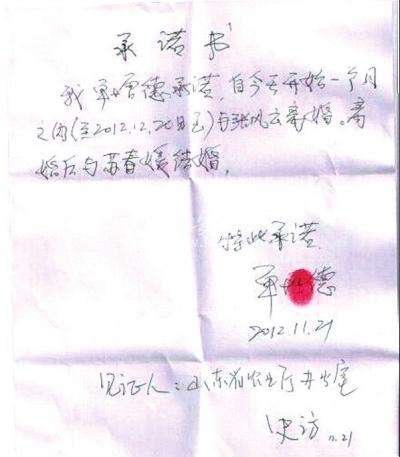 承诺书
我单增德承诺，自今天开始一个月
之内（至2012.12.20日止）与张风云离婚。离
婚后与苏春媛结婚，
特此承诺
单增德
2012.11.21
见证人：山东省农业厅办公室
史访 11.21